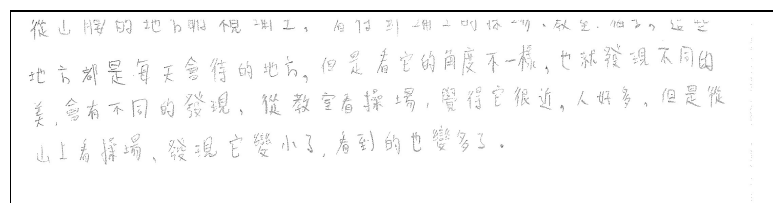 從山腰的地方
地方都是每天會待的地方，但是看它的角度不一樣，也就發現不同的
美，會有不同的發現，從教室看操場，覺得它很近，人好多，但是從
山上看操場，發現它變小了，看到的也變多了。